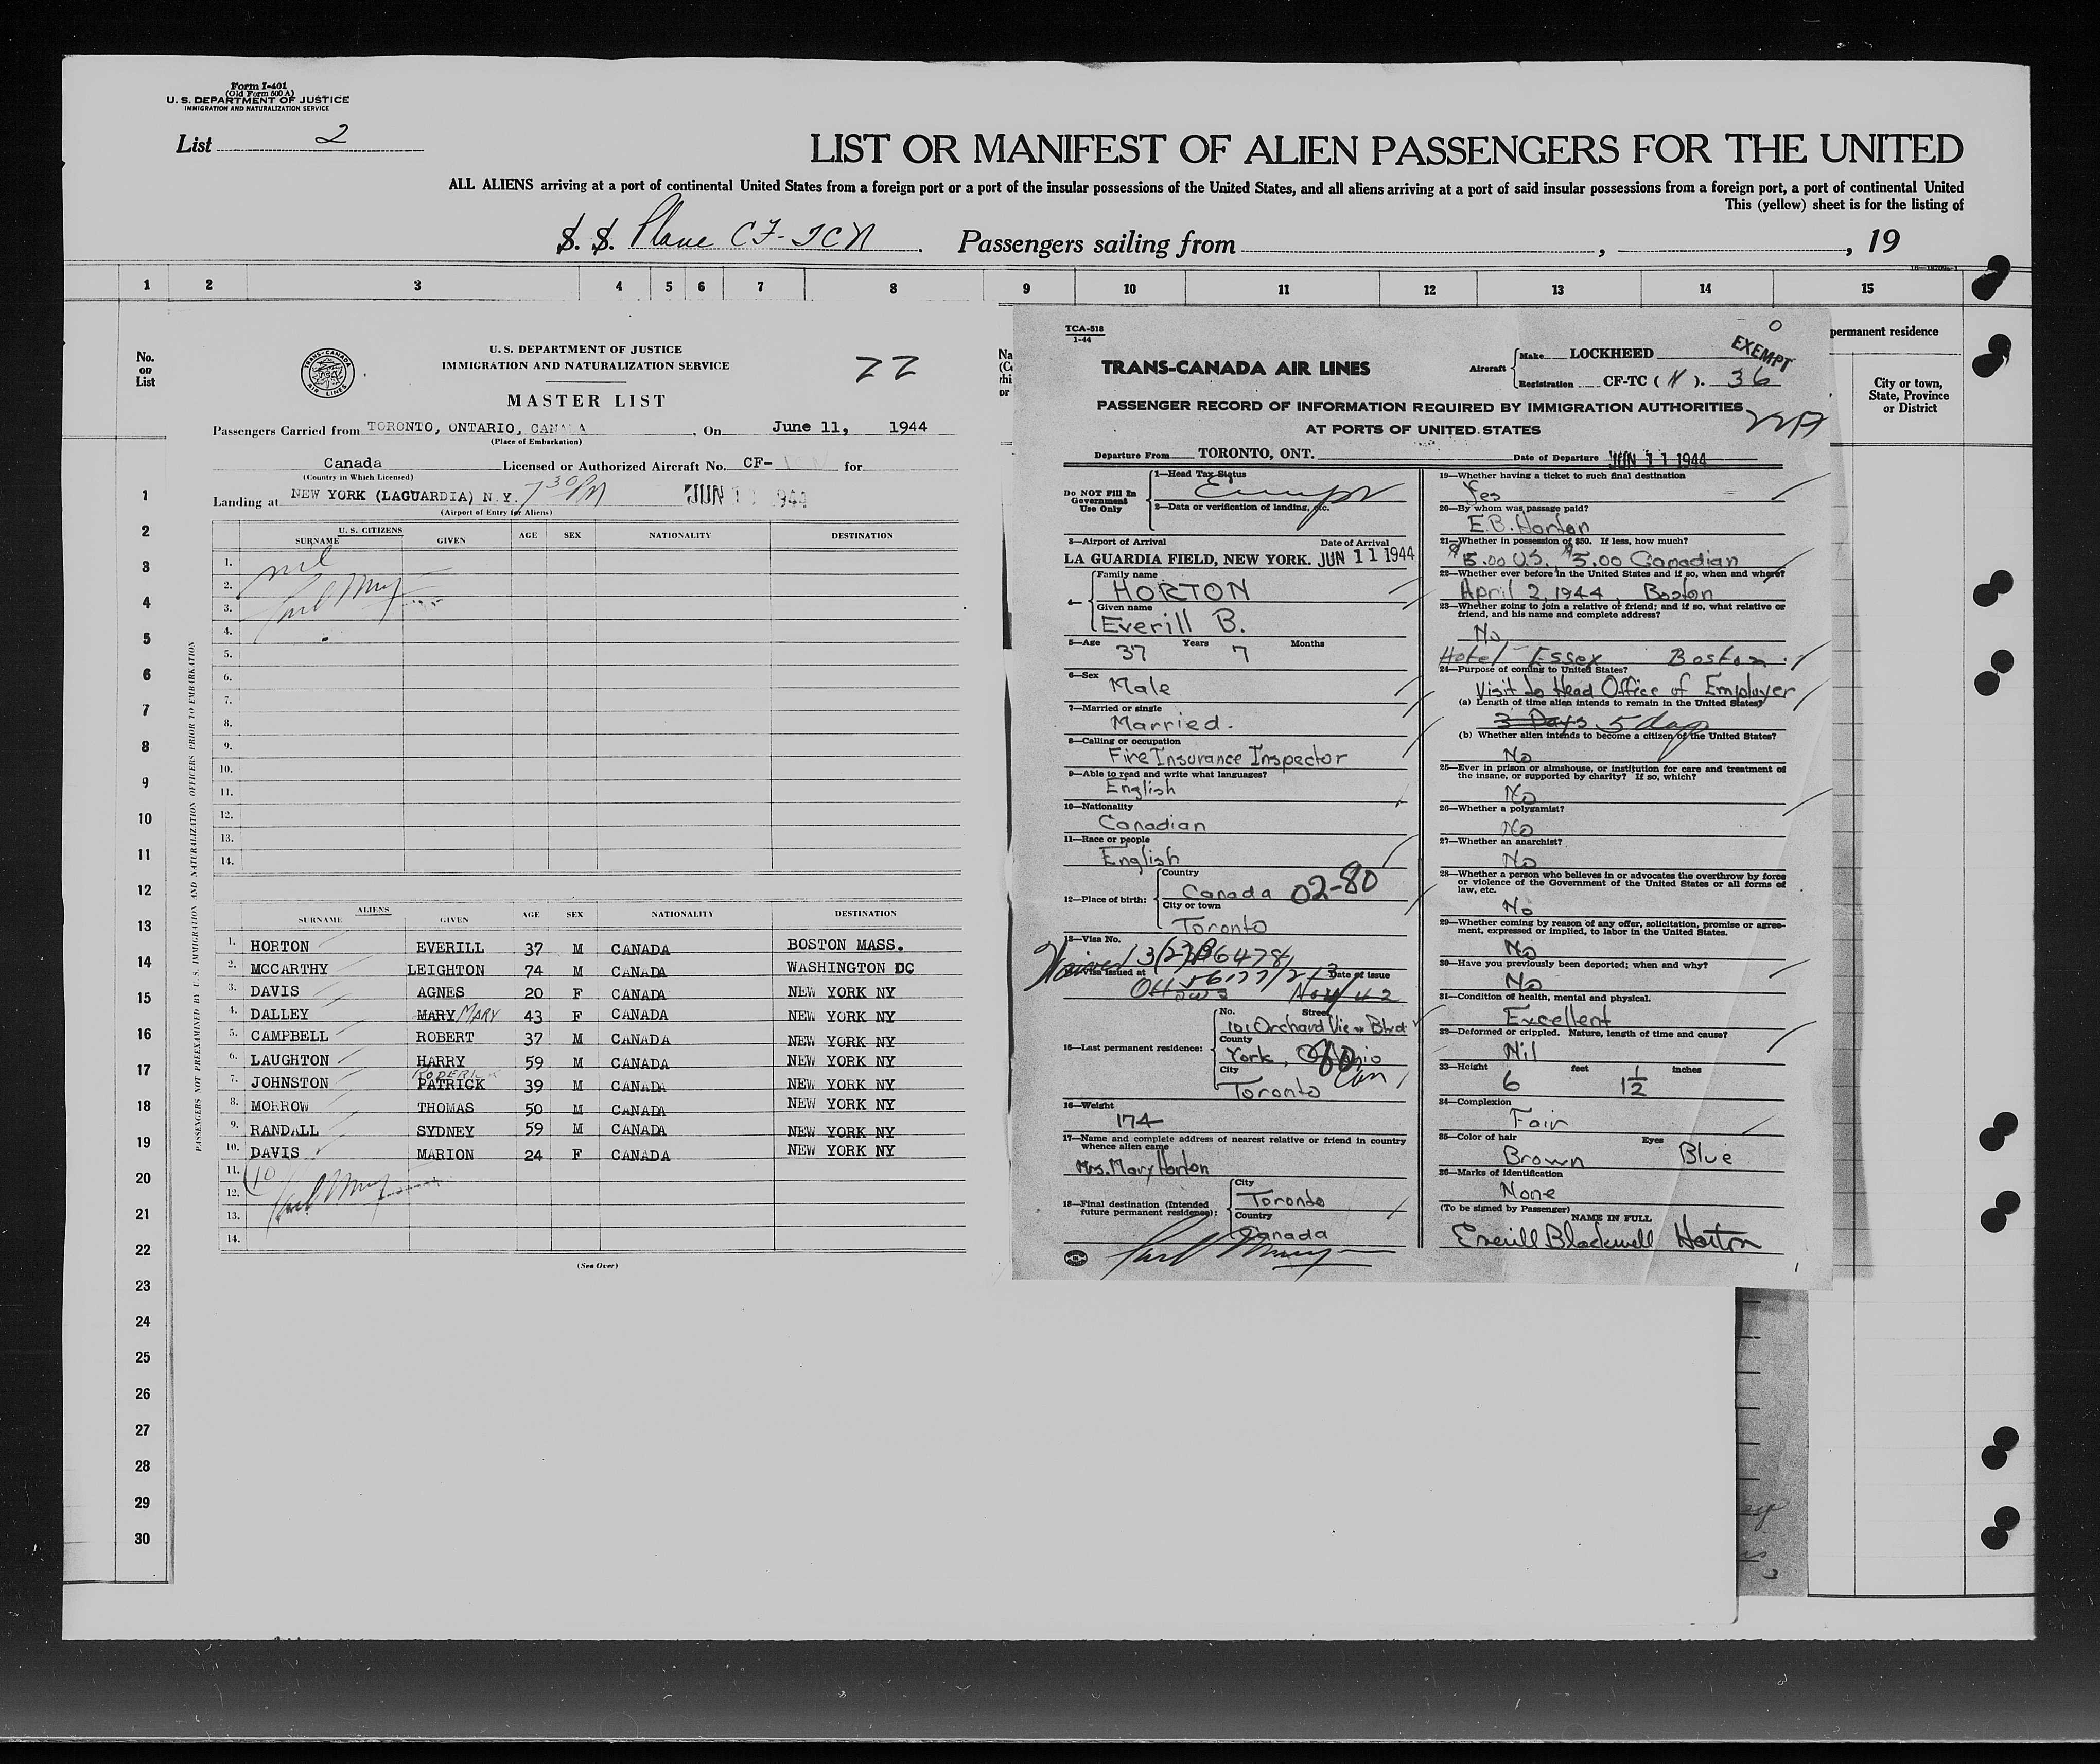 Form I-401
(Old Form 500 A)
U. S. DEPARTMENT OF JUSTICE
IMMIGRATION AND NATURALIZATION SERVICE
List 2
LIST OR MANIFEST OF ALIEN PASSENGERS FOR THE UNITED
ALL ALIENS arriving at a port of continental United States from a foreign port or a port of the insular possessions of the United States, and all aliens arriving at a port of said insular possessions from a foreign port, a port of continental United
This (yellow) sheet is for the listing of
S. S. Plane CF-TCN Passengers sailing from , , 19
1 2 3 4 5 6 7 8 9 10 11 12 13 14 15
No.
on
List
permanent residence
City or town,
State, Province
or District
1
2
3
4
5
6
7
8
9
10
11
12
13
14
15
16
17
18
19
20
21
22
23
24
25
26
27
28
29
30
PASSENGERS NOT PREEXAMINED BY U.S. IMMIGRATION AND NATURALIZATION OFFICERS PRIOR TO EMBARKATION
TRANS-CANADA AIR LINES
U. S. DEPARTMENT OF JUSTICE
IMMIGRATION AND NATURALIZATION SERVICE
22
MASTER LIST
Passengers Carried from TORONTO, ONTARIO, CANADA, On June 11, 1944
(Place of Embarkation)
Canada Licensed or Authorized Aircraft No. CF- for
(Country in Which Licensed)
Landing at NEW YORK (LAGUARDIA) N.Y. 7 30 PM JUN 11 1944
(Airport of Entry for Aliens)
U. S. CITIZENS
SURNAME GIVEN AGE SEX NATIONALITY DESTINATION
1. nil
2.
3.
4.
5.
6.
7.
8.
9.
10.
11.
12.
13.
14.
ALIENS
SURNAME GIVEN AGE SEX NATIONALITY DESTINATION
1. HORTON EVERILL 37 M CANADA BOSTON MASS.
2. MCCARTHY LEIGHTON 74 M CANADA WASHINGTON DC
3. DAVIS AGNES 20 F CANADA NEW YORK NY
4. DALLEY MARY MARY 43 F CANADA NEW YORK NY
5. CAMPBELL ROBERT 37 M CANADA NEW YORK NY
6. LAUGHTON HARRY 59 M CANADA NEW YORK NY
RODERICK
7. JOHNSTON PATRICK 39 M CANADA NEW YORK NY
8. MORROW THOMAS 50 M CANADA NEW YORK NY
9. RANDALL SYDNEY 59 M CANADA NEW YORK NY
10. DAVIS MARION 24 F CANADA NEW YORK NY
11. (10
12.
13.
14.
(See Over)
TCA-518
1-44
TRANS-CANADA AIR LINES
Aircraft Make LOCKHEED
Registration CF-TC (N). 36
EXEMPT
PASSENGER RECORD OF INFORMATION REQUIRED BY IMMIGRATION AUTHORITIES
AT PORTS OF UNITED STATES
Departure From TORONTO, ONT. Date of Departure JUN 11 1944
Do NOT Fill In
Government
Use Only
1—Head Tax Status
2—Data or verification of landing, etc.
3—Airport of Arrival Date of Arrival
LA GUARDIA FIELD, NEW YORK. JUN 11 1944
4— Family name
HORTON
Given name
Everill B.
5—Age Years Months
37 7
6—Sex
Male
7—Married or single
Married.
8—Calling or occupation
Fire Insurance Inspector
9—Able to read and write what languages?
English
10—Nationality
Canadian
11—Race or people
English
12—Place of birth: Country
Canada 02-80
City or town
Toronto
13—Visa No.
Visa issued at Date of issue
Ottawa
15—Last permanent residence: No. Street
101 Orchard View Blvd
County
York, Ontario
City Can
Toronto
16—Weight
174
17—Name and complete address of nearest relative or friend in country
whence alien came
Mrs. Mary Horton
18—Final destination (Intended
future permanent residence): City
Toronto
Country
Canada
19—Whether having a ticket to such final destination
Yes
20—By whom was passage paid?
E.B. Horton
21—Whether in possession of $50. If less, how much?
$15.00 U.S. $5.00 Canadian
22—Whether ever before in the United States and if so, when and where?
April 2, 1944, Boston
23—Whether going to join a relative or friend; and if so, what relative or
friend, and his name and complete address?
No
Hotel Essex Boston
24—Purpose of coming to United States?
Visit to Head Office of Employer
(a) Length of time alien intends to remain in the United States?
3 Days 5 days
(b) Whether alien intends to become a citizen of the United States?
No
25—Ever in prison or almshouse, or institution for care and treatment of
the insane, or supported by charity? If so, which?
No
26—Whether a polygamist?
No
27—Whether an anarchist?
No
28—Whether a person who believes in or advocates the overthrow by force
or violence of the Government of the United States or all forms of
law, etc.
No
29—Whether coming by reason of any offer, solicitation, promise or agree-
ment, expressed or implied, to labor in the United States.
No
30—Have you previously been deported; when and why?
No
31—Condition of health, mental and physical.
Excellent
32—Deformed or crippled. Nature, length of time and cause?
Nil
33—Height feet inches
6 1 1/2
34—Complexion
Fair
35—Color of hair Eyes
Brown Blue
36—Marks of identification
None
(To be signed by Passenger)
NAME IN FULL
Everill Blackwell Horton